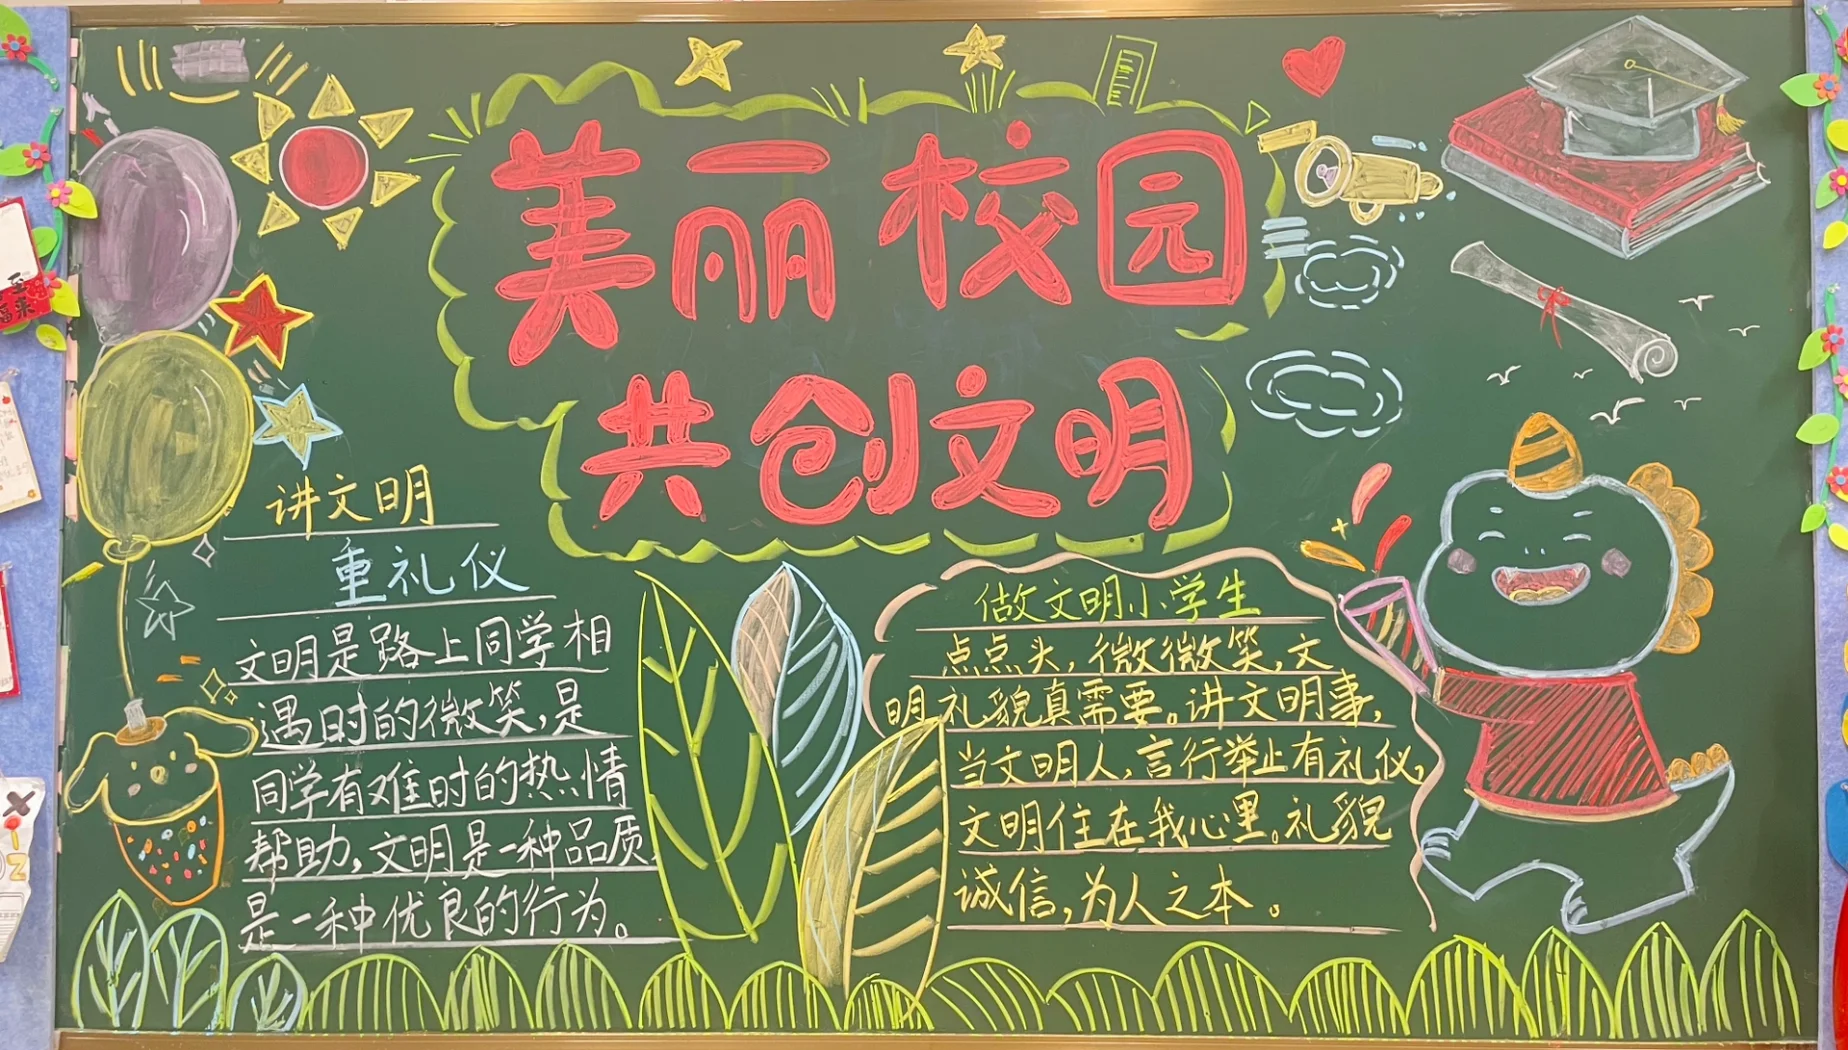 美丽校园
共创文明
讲文明
重礼仪
文明是路上同学相
遇时的微笑,是
同学有难时的热情
帮助,文明是一种品质,
是一种优良的行为。
做文明小学生
点点头,微微笑,文
明礼貌真需要。讲文明事,
当文明人,言行举止有礼仪,
文明住在我心里。礼貌
诚信,为人之本。